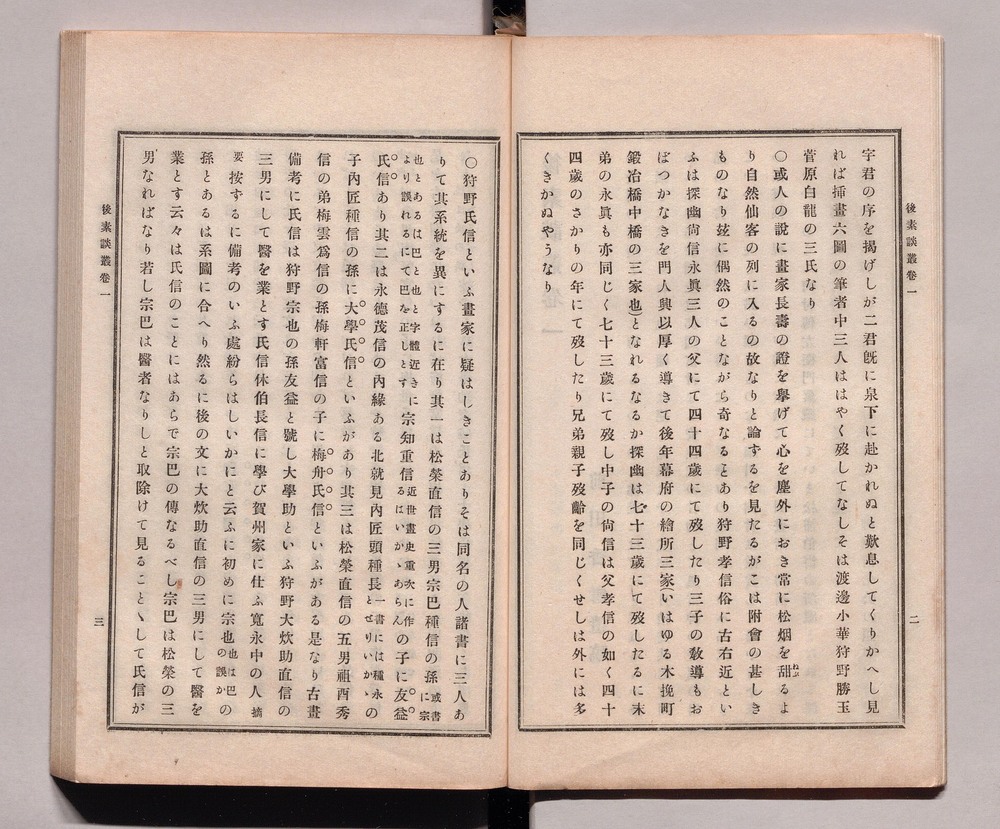 後素談叢卷一
二
字君の序を揭げしが二君旣に泉下に赴かれぬと歎息してくりかへし見
れば揷畫六圖の筆者中三人ははやく歿してなしそは渡邊小華狩野勝玉
菅原白龍の三氏なり
〇或人の說に畫家長壽の證を擧げて心を塵外におき常に松烟を甜るよ
り自然仙客の列に入るの故なりと論ずるを見たるがこは附會の甚しき
ものなり玆に偶然のことながら奇なることあり狩野孝信俗に古右近とい
ふは探幽尙信永眞三人の父にて四十四歲にて歿したり三子の敎導もお
ぼつかなきを門人興以厚く導きて後年幕府の繪所三家(いはゆる木挽町
鍛冶橋中橋の三家也)となれるなるか探幽は七十三歲にて歿したるに末
弟の永眞も亦同じく七十三歲にて歿し中子の尙信は父孝信の如く四十
四歲のさかりの年にて歿したり兄弟親子歿齡を同じくせしは外には多
くきかぬやうなり
〇狩野氏信といふ畫家に疑はしきことありそは同名の人諸書に三人あ
りて其系統を異にするに在り其一は松榮直信の三男宗巴種信の孫或書に宗
也とあるは巴と也と字體近きにより誤れるにて巴を正しとす宗知重信近世畫史重次に作るはいかゞあらんの子に友益
氏信あり其二は永德茂信の內緣ある北就見內匠頭種長一書には種永とせりいかゞの
子內匠種信の孫に大學氏信といふがあり其三は松榮直信の五男祖酉秀
信の弟梅雲爲信の孫梅軒富信の子に梅舟氏信といふがある是なり古畫
備考に氏信は狩野宗也の孫友益と號し大學助といふ狩野大炊助直信の
三男にして醫を業とす氏信休伯長信に學び賀州家に仕ふ寬永中の人摘
要按ずるに備考のいふ處紛らはしいかにと云ふに初めに宗也也は巴の誤かの
孫とあるは系圖に合へり然るに後の文に大炊助直信の三男にして醫を
業とす云々は氏信のことにはあらで宗巴の傳なるべし宗巴は松榮の三
男なればなり若し宗巴は醫者なりしと取除けて見ることゝして氏信が
後素談叢卷一
三